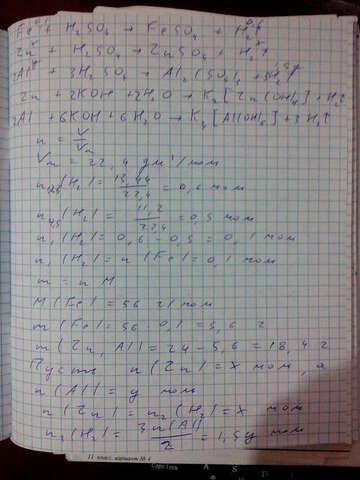 Fe + H₂SO₄ → FeSO₄ + H₂↑
Zn + H₂SO₄ → ZnSO₄ + H₂↑
2Al + 3H₂SO₄ → Al₂(SO₄)₃ + 3H₂↑
Zn + 2KOH + 2H₂O → K₂[Zn(OH)₄] + H₂↑
2Al + 6KOH + 6H₂O → K₃[Al(OH)₆] + 3H₂↑
n = V/Vm
Vm = 22,4 дм³/моль
(H₂) = 13,44/22,4 = 0,6 моль
(H₂) = 11,2/22,4 = 0,5 моль
n₁(H₂) = 0,6 - 0,5 = 0,1 моль
n₁(H₂) = n(Fe) = 0,1 моль
m = n M
M(Fe) = 56 г/моль
m(Fe) = 56 · 0,1 = 5,6 г
m(Zn, Al) = 24 - 5,6 = 18,4 г
Пусть n(Zn) = x моль, а
n(Al) = y моль
n(Zn) = n₂(H₂) = x моль
n₃(H₂) = 3n(Al)/2 = 1,5y моль
11 класс, вариант № 4